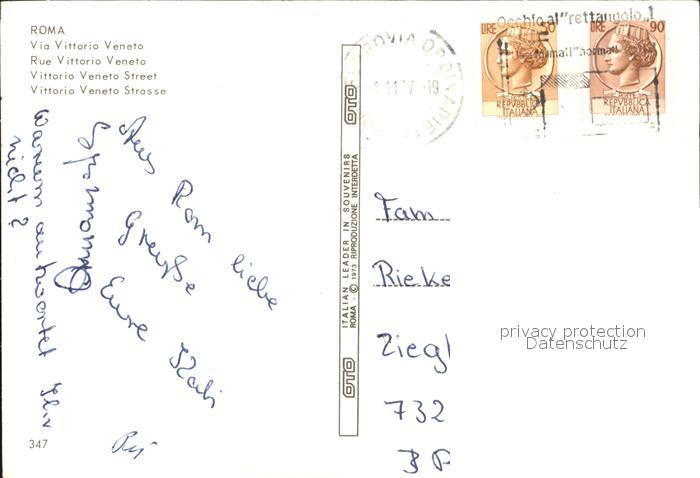 ROMA
Via Vittorio Veneto
Rue Vittorio Veneto
Vittorio Veneto Street
Vittorio Veneto Strasse
Aus Rom liebe
Grüße
Eure
Warum antwortet Ihr
nicht?
347
OTO
ITALIAN LEADER IN SOUVENIRS
ROMA - © 1973 RIPRODUZIONE INTERDETTA
OTO
FERROVIA ORDINARIE
Occhio al "rettangolo"!
"normali"
LIRE
POSTE
REPVBBLICA
ITALIANA
LIRE 90
POSTE
REPVBBLICA
ITALIANA
Fam
Rieke
Ziegl
732
privacy protection
Datenschutz